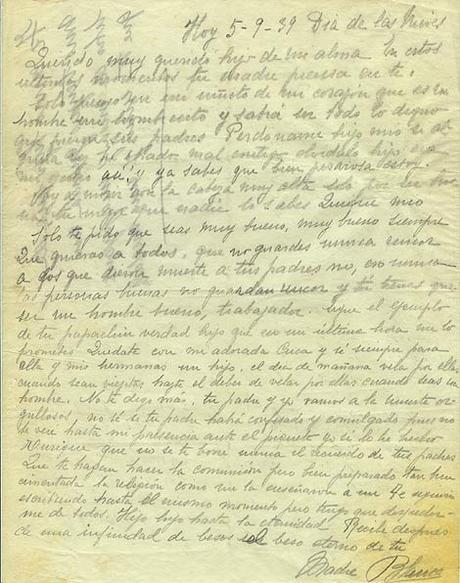 Hoy 5-9-39 Dia de las Nieves
Querido muy querido hijo de mi alma En estos
ultimos momentos tu madre piensa en ti.
Solo pienso en mi niñito de mi corazon que es un
hombre un hombrecito y sabrá ser todo lo digno
que fueron sus padres Perdoname hijo mio si al
guna vez he obrado mal contigo olvidalo hijo
no me asi, y ya sabes que bien pesarosa estoy.
Voy a morir con la cabeza muy alta solo por ser bue
na tu mejor que nadie lo sabes Quique mio
Solo te pido que seas muy bueno, muy bueno siempre
Que quieras a todos, que no guardes nunca rencor
a los que dieron muerte a tus padres no, eso nunca
las personas buenas no guardan rencor y tu tienes que
ser un hombre bueno, trabajador. Sigue el ejemplo
de tu papachin verdad hijo que en mi última hora me lo
prometes Quedate con mi adorada Cuca y sé siempre para
ella y mis hermanas un hijo, el dia de mañana vela por ellas
cuando sean viejitas hazte el deber de velar por ellas cuando seas un
hombre. No te digo más, tu padre y yo vamos a la muerte or
gullosos, no sé si tu padre habrá confesado y comulgado pues no
le veré hasta mi presencia ante el piquete yo si lo he hecho
Enrique que no se te borre nunca el recuerdo de tus padres
Que te hagan hacer la comunión pero bien preparado tan bien
cimentada la religión como me la enseñaron a mi Te seguiria
escribiendo hasta el mismo momento pero tengo que despedir
me de todos. Hijo hijo hasta la eternidad Recibe después
de una infinidad de besos el beso eterno de tu
Madre Blanca